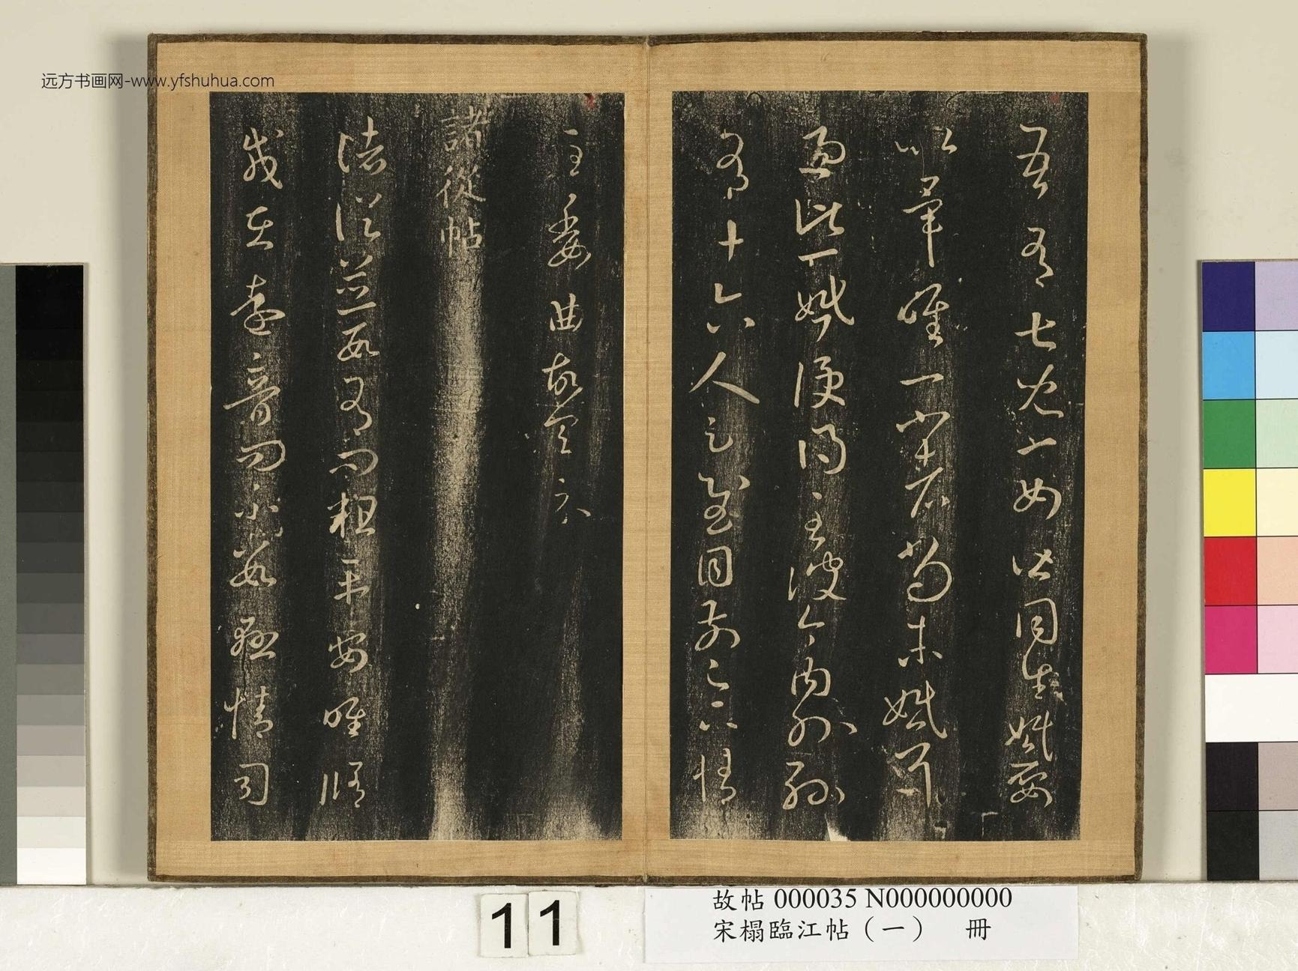 远方书画网-www.yfshuhua.com
吾有七兒一女皆同生婚娶
以畢唯一小者尚未婚耳
過此一婚便得至彼今內外孫
有十六人足慰目前足下情
至委曲故具示
諸從帖
諸從並數有問粗平安唯脩
載在遠音問不數懸情司
11
故帖 000035 N000000000
宋榻臨江帖（一） 冊